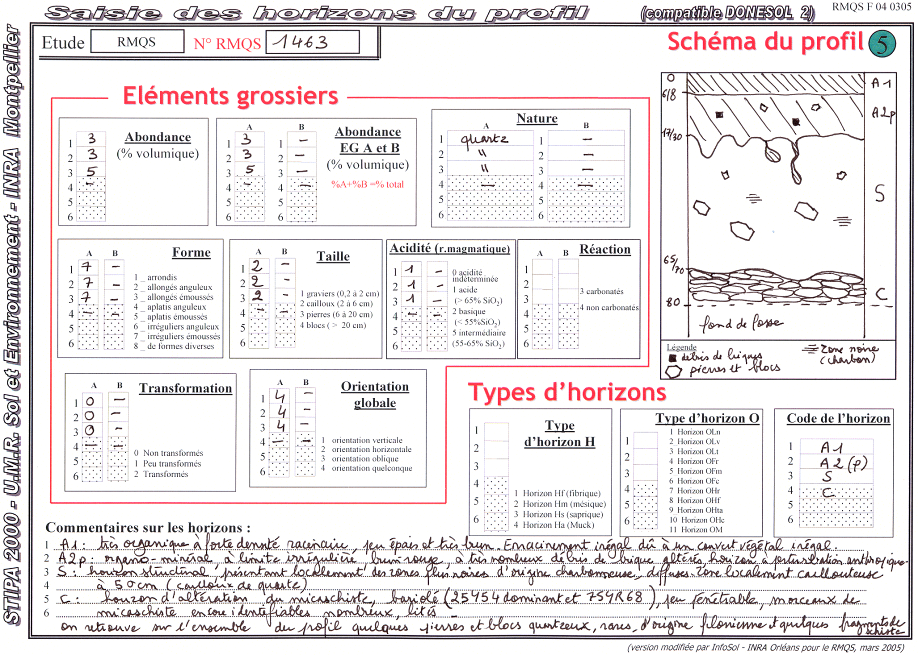 Saisie des horizons du profil
(compatible DONESOL 2)
RMQS F 04 0305
STIPA 2000 - U.M.R. Sol et Environnement - INRA Montpellier
Etude RMQS N° RMQS 1463
Schéma du profil 5
Eléments grossiers
Abondance
(% volumique)
1 3
2 3
3 5
4 -
5
6
A B
Abondance
EG A et B
(% volumique)
%A+%B =% total
1 3 -
2 3 -
3 5 -
4 - -
5
6
Nature
A B
1 quartz -
2 " -
3 " -
4 - -
5
6
Forme
A B
1 7 -
2 7 -
3 7 -
4 - -
5
6
1 _ arrondis
2 _ allongés anguleux
3 _ allongés émoussés
4 _ aplatis anguleux
5 _ aplatis émoussés
6 _ irréguliers anguleux
7 _ irréguliers émoussés
8 _ de formes diverses
Taille
A B
1 2 -
2 2 -
3 2 -
4 - -
5
6
1 graviers (0,2 à 2 cm)
2 cailloux (2 à 6 cm)
3 pierres (6 à 20 cm)
4 blocs ( > 20 cm)
Acidité (r.magmatique)
A B
1 1 -
2 1 -
3 1 -
4 - -
5
6
0 acidité
indéterminée
1 acide
(> 65% SiO2)
2 basique
(< 55%SiO2)
5 intermédiaire
(55-65% SiO2)
Réaction
A B
1
2
3
4
5
6
3 carbonatés
4 non carbonatés
Transformation
A B
1 0 -
2 0 -
3 0 -
4 - -
5
6
0 Non transformés
1 Peu transformés
2 Transformés
Orientation
globale
A B
1 4 -
2 4 -
3 4 -
4 - -
5
6
1 orientation verticale
2 orientation horizontale
3 orientation oblique
4 orientation quelconque
0
6/8
17/30
65/70
80
A1
A2p
S
C
fond de fosse
Légende
débris de briques
pierres et blocs
zone noire
(charbon)
Types d'horizons
Type
d'horizon H
1
2
3
4
5
6
1 Horizon Hf (fibrique)
2 Horizon Hm (mésique)
3 Horizon Hs (saprique)
4 Horizon Ha (Muck)
Type d'horizon O
1
2
3
4
5
6
1 Horizon OLn
2 Horizon OLv
3 Horizon OLt
4 Horizon OFr
5 Horizon OFm
6 Horizon OFc
7 Horizon OHr
8 Horizon OHf
9 Horizon OHta
10 Horizon OHc
11 Horizon OM
Code de l'horizon
1 A1
2 A2(p)
3 S
4 C
5
6
Commentaires sur les horizons :
1 A1 : très organique à forte densité racinaire, peu épais et très brun. Enracinement inégal dû à un couvert végétal inégal
2 A2p : organo-minéral à limite irrégulière, brun rouge, à très nombreux débris de brique altérés, horizon à perturbation anthropique
3 S : horizon structural, présentant localement des zones plus noires d'origine charbonneuse, diffuses. Zone localement caillouteuse
4 à 55 cm (cailloux de quartz)
5 C : horizon d'altération du micaschiste, bariolé (25Y54 dominant et 75YR68), peu pénétrable, morceaux de
6 micaschiste encore identifiables nombreux, lités
on retrouve sur l'ensemble du profil quelques pierres et blocs quartzeux, rares, d'origine filonienne et quelques fragments de schiste
(version modifiée par InfoSol - INRA Orléans pour le RMQS, mars 2005)